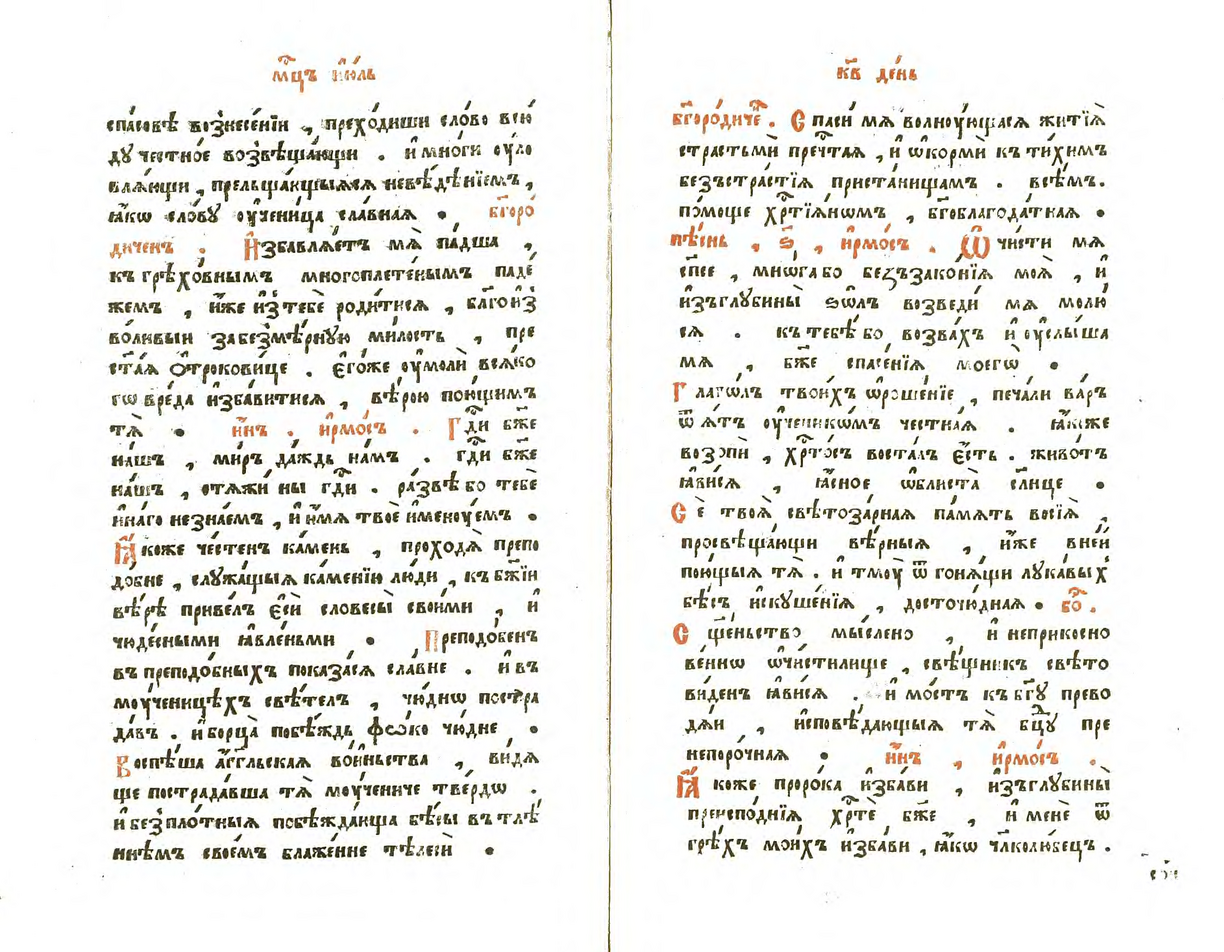 мⷭ҇цъ і҆ю́ль
спа́совѣ вознесе́нїи , преходиши сло́во всю
дꙋ че́стное возвѣща́ющи . и҆ мно́ги оу҆ло
вля́ющи , прельща́ющыяся невѣ́дѣнїемъ ,
ꙗ҆́кѡ сло́вꙋ оу҆чени́ца сла́вная • бг҃оро́
диченъ ; И҆збавля́етъ мѧ̀ па́дша ,
къ грѣхо́внымъ многоплете́нымъ паде́
жемъ , и҆́же и҆з̾ тебѐ роди́тися , бл҃гоиз̾
во́ливыи за безмѣ́рнꙋю ми́лость , пре
ста́ѧ ѻ҆трокови́це . є҆го́же оу҆молѝ всѧ́ко
гѡ вре́да и҆зба́витисѧ , вѣ́рою пою́щимъ
тѧ̀ • и҆́нъ . і҆рмо́съ . Гдⷭ҇и бж҃е
на́шъ , ми́ръ да́ждь на́мъ . гдⷭ҇и бж҃е
на́шъ , стѧжи́ ны гдⷭ҇и . ра́звѣ бо тебѐ
и҆на́го незна́емъ , и҆ и҆́мѧ твоѐ и҆менꙋ́емъ •
Ꙗ҆́коже че́стенъ ка́мень , проходѧ̀ препо
до́бне , слꙋжа́щыѧ ка́менїю лю́ди , къ бж҃їи
вѣ́рѣ приве́лъ є҆сѝ словесы̀ свои́ми , и҆
чюде́сными ꙗ҆вле́ньми • Преподо́бенъ
въ преподо́бныхъ показа́сѧ сла́вне . и҆ въ
моу́ченицѣхъ свѣ́телъ , чю́днѡ постра
да́въ . и҆ борца̀ побѣ́ждь фѡ́ко чю́дне •
Воспѣ́ша а҆́гг҃льскаѧ во́иньства , ви́дѧ
ще пострада́вша тѧ̀ моу́чениче тве́рдѡ .
и҆ безпло́тныѧ побѣжда́юща бѣ́сы въ тлѣ́
ннѣмъ свое́мъ блаже́нне тѣлесѝ •
к҃в де́нь
бг҃оро́диче . Спасѝ мѧ волнꙋ́ющасѧ житїѧ̀
страстьмѝ пречⷭ҇таѧ , и҆ ѡ҆кормѝ къ ти́химъ
безъстра́стїѧ приста́нищамъ . всѣ́мъ.
помо́ще хрⷭ҇тїѧ́нѡмъ , бг҃облагода́тнаѧ •
пѣ́снь , ѕ҃ , і҆рмо́съ . Ѡ҆чи́сти мѧ
сп҃се , мнѡ́га бо беззакѡ́нїѧ моѧ̀ , и҆
и҆зъ глꙋбины̀ ѕѡ́лъ возведѝ мѧ молю́
сѧ . къ тебѣ́ бо возва́хъ и҆ оу҆слы́ша
мѧ , бж҃е спасе́нїѧ моегѡ̀ •
Глаго́лъ твои́хъ ѡ҆роше́нїе , печа́ли ва́ръ
ѿѧ́тъ оу҆ченикѡ́мъ че́стнаѧ . ꙗ҆́коже
возопѝ , хрⷭ҇то́съ воста́лъ є҆́сть . живо́тъ
ꙗ҆ви́сѧ , ꙗ҆́сное ѡ҆блиста̀ сл҃нце •
Сѐ твоѧ̀ свѣтоза́рнаѧ па́мѧть восїѧ̀ ,
просвѣща́ющи вѣ́рныѧ , и҆́же вне́и
пою́щыѧ тѧ̀ . и҆ тмоу̀ ѿгонѧ́щи лꙋка́выхъ
бѣ́съ и҆скꙋше́нїѧ , досточю́днаѧ • бо҃ .
Сщ҃е́ньство мы́слено , и҆ неприкосно
ве́ннѡ ѡ҆чисти́лище , свѣ́щникъ свѣто
ви́денъ ꙗ҆ви́сѧ . и҆ мо́стъ къ бг҃ꙋ прево
дѧ́и , и҆сповѣ́дающыѧ тѧ̀ бцⷣꙋ пре
непоро́чнаѧ • и҆́нъ , і҆рмо́съ .
Ꙗ҆́коже проро́ка и҆зба́ви , и҆зъ глꙋбины̀
преиспо́днїѧ хрⷭ҇те́ бж҃е , и҆ менѐ ѿ
грѣ́хъ мои́хъ и҆зба́ви , ꙗ҆́кѡ чл҃колю́бецъ .